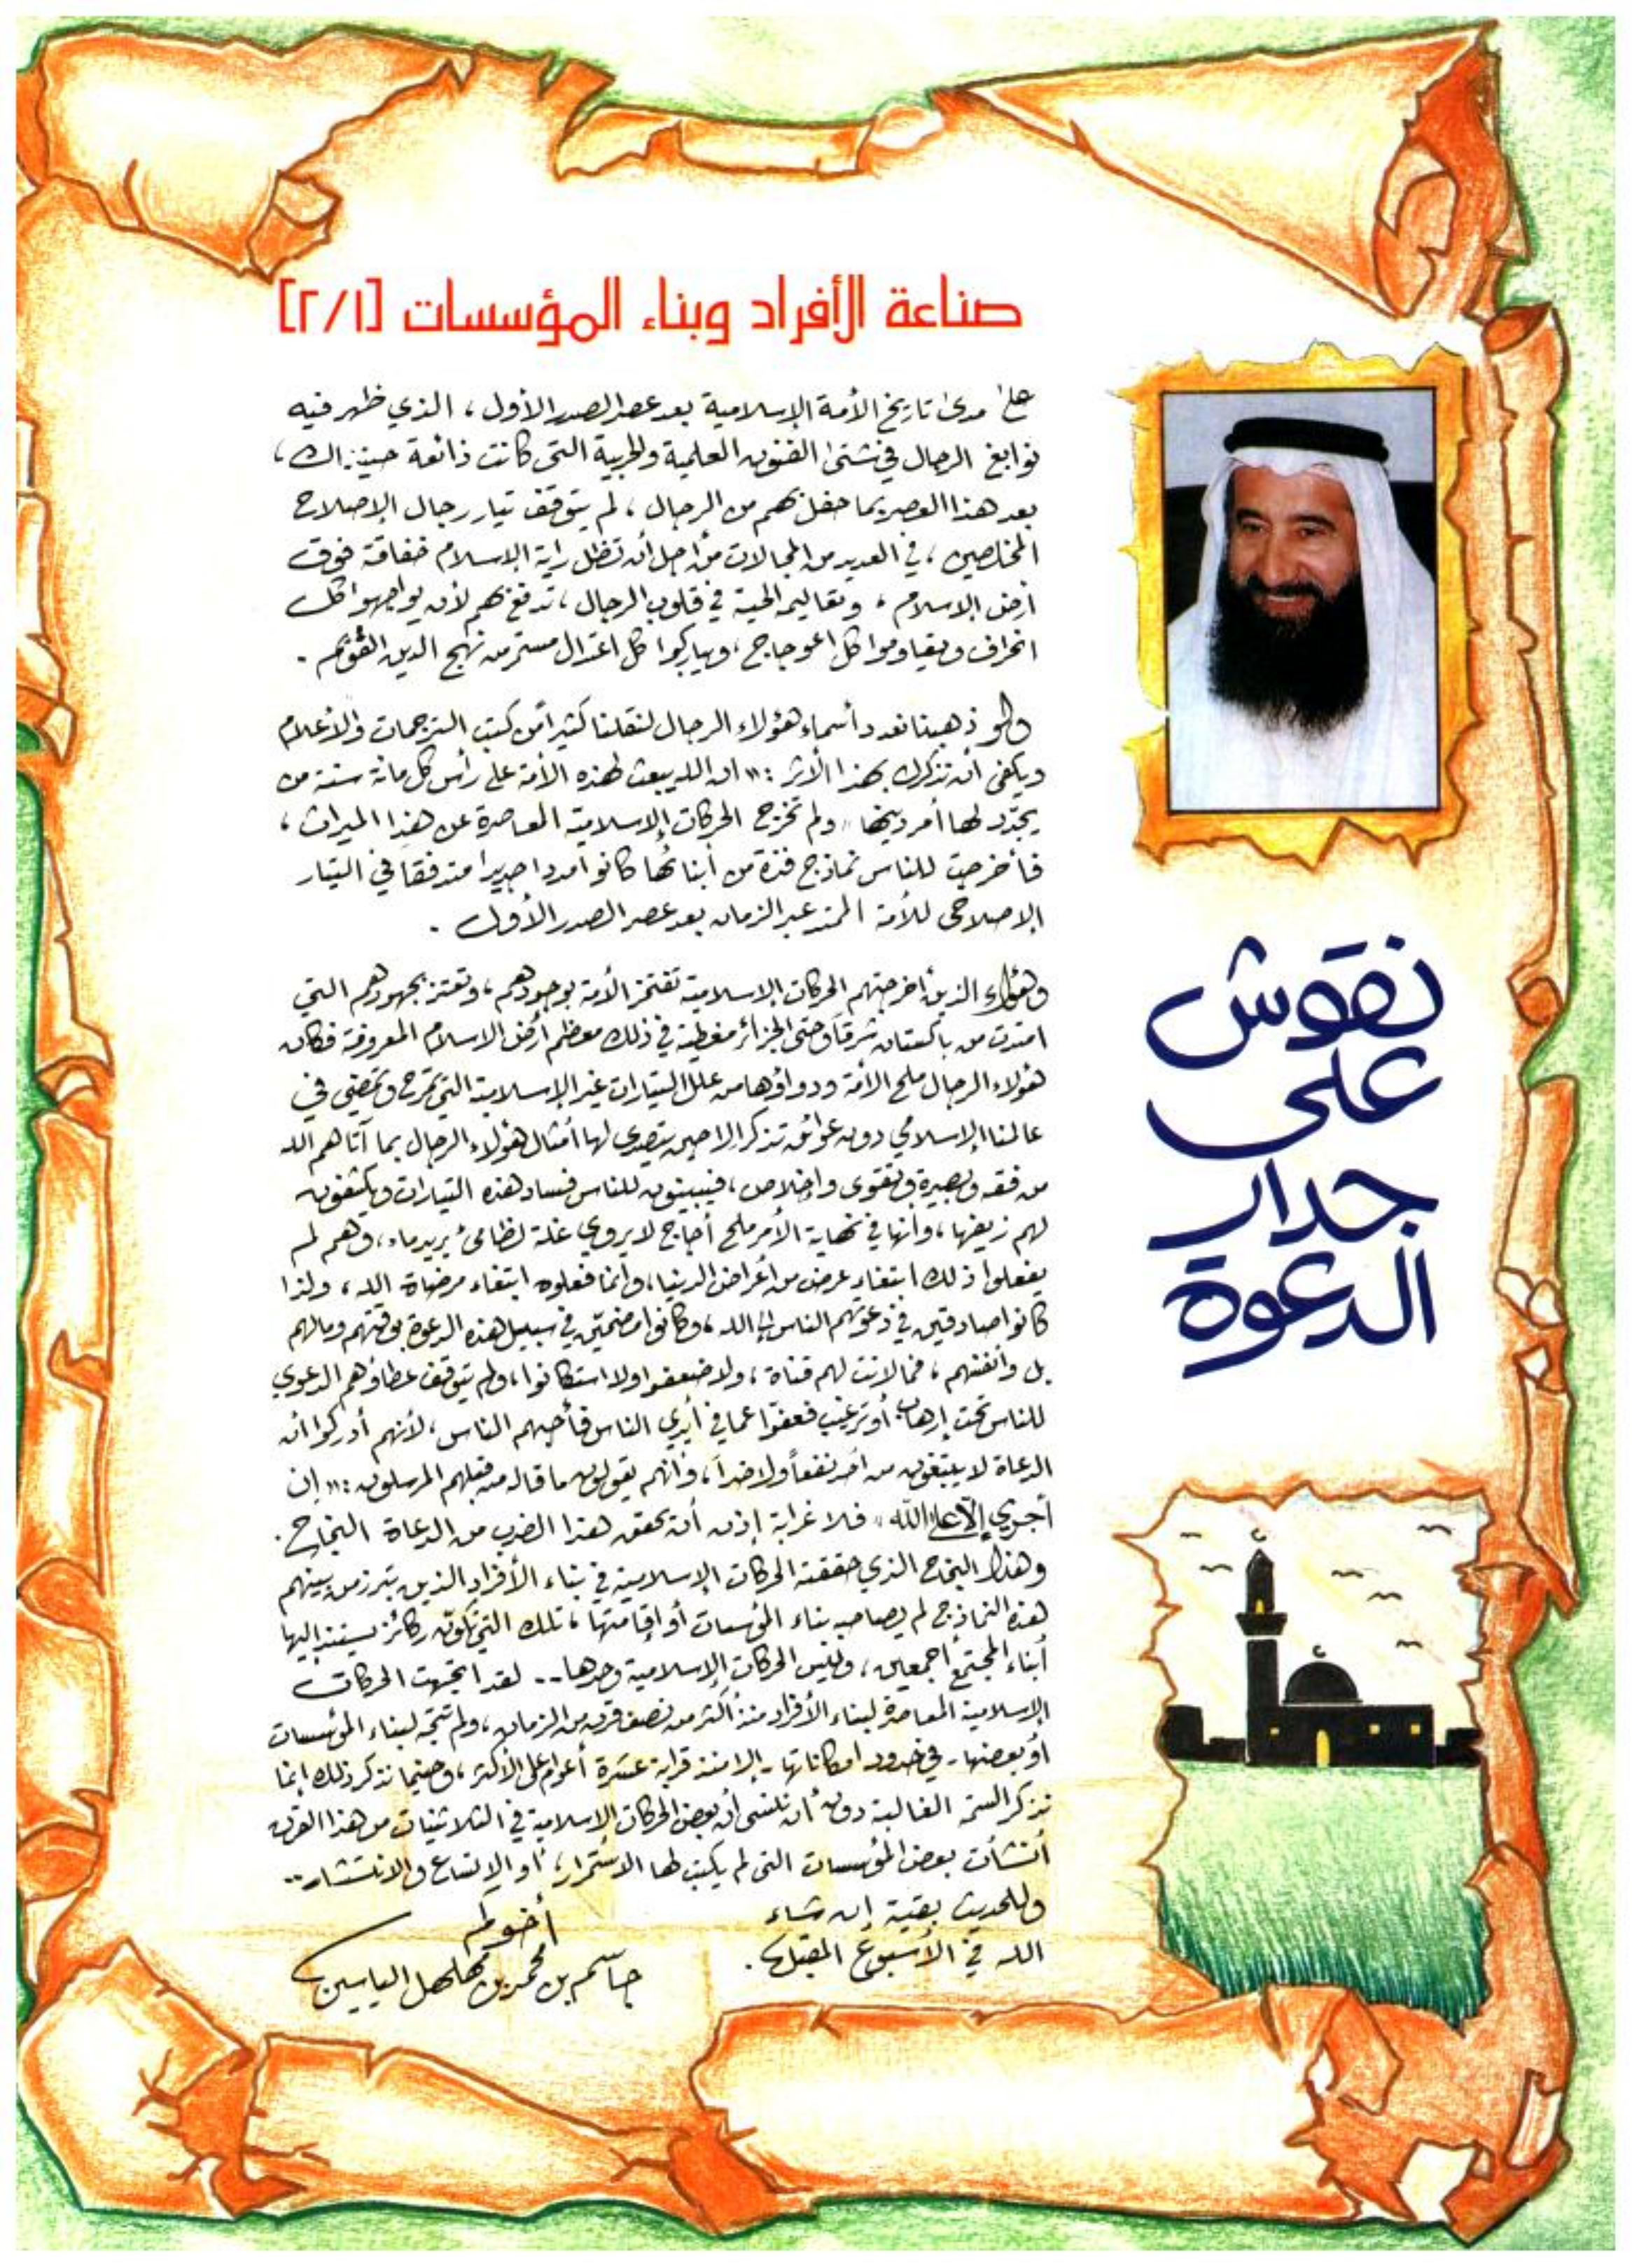 صناعة الأفراد وبناء المؤسسات [٢/١]
على مدى تاريخ الأمة الإسلامية بعد عصر الصدر الأول، الذي ظهر فيه
نوابغ الرجال في شتى الفنون العلمية والحربية التي كانت ذائعة حينذاك،
بعد هذا العصر بما حفل بهم من الرجال، لم يتوقف تيار رجال الإصلاح
المخلصين، في العديد من المجالات من أجل أن تظل راية الإسلام خفاقة فوق
أرض الإسلام، وتعاليمه الحية في قلوب الرجال، تدفعهم لأن يواجهوا كل
انحراف ويقاوموا كل اعوجاج، ويباركوا كل اعتدال مستمر من نهج الدين القويم.
ولو ذهبنا نعدد أسماء هؤلاء الرجال لنقلنا كثيراً من كتب الترجمات والأعلام
ويكفي أن نذكرك بهذا الأثر: «إن الله يبعث لهذه الأمة على رأس كل مائة سنة من
يجدّد لها أمر دينها» ولم تخرج الحركات الإسلامية المعاصرة عن هذا الميراث،
فأخرجت للناس نماذج فذة من أبنائها كانوا مددا جديدا متدفقا في التيار
الإصلاحي للأمة الممتد عبر الزمان بعد عصر الصدر الأول.
وهؤلاء الذين أخرجتهم الحركات الإسلامية تفتخر الأمة بوجودهم، وتعتز بجهودهم التي
امتدت من باكستان شرقاً وحتى الجزائر مغطية في ذلك معظم أرض الاسلام المعروفة فكان
هؤلاء الرجال ملح الأمة ودواؤها من علل التيارات غير الإسلامية التي تمرح وتمضي في
عالمنا الإسلامي دون عوائق تذكر إلا حين يتصدى لها أمثال هؤلاء الرجال بما آتاهم الله
من فقه وبصيرة وتقوى وإخلاص، فيبينون للناس فساد هذه التيارات ويكشفون
لهم زيفها، وأنها في نهاية الأمر ملح أجاج لا يروي غلة لظامئ يريد ماء، وهم لم
يفعلوا ذلك ابتغاء عرض من أعراض الدنيا، وإنما فعلوه ابتغاء مرضاة الله، ولذا
كانوا صادقين في دعوتهم الناس إلى الله، وكانوا مضحّين في سبيل هذه الدعوة بوقتهم ومالهم
بل وأنفسهم، فما لانت لهم قناة، ولا ضعفوا ولا استكانوا، ولم يتوقف عطاؤهم الدعوي
للناس تحت إرهاب أو ترغيب فعفّوا عما في أيدي الناس فأحبهم الناس، لأنهم أدركوا أن
الدعاة لا يبتغون من أحد نفعاً ولا ضراً، وأنهم يقولون ما قاله من قبلهم المرسلون: «إن
أجري إلّا على اللّه» فلا غرابة إذن أن يحقق هذا الضرب من الدعاة النجاح.
وهذا النجاح الذي حققته الحركات الإسلامية في بناء الأفراد الذين تبرز من بينهم
هذه النماذج لم يصاحبه بناء المؤسسات أو إقامتها، تلك التي تكون ركائز يستند إليها
أبناء المجتمع أجمعين، وليس الحركات الإسلامية وحدها.. لقد اتجهت الحركات
الإسلامية المعاصرة لبناء الأفراد منذ أكثر من نصف قرن من الزمان، ولم تتجه لبناء المؤسسات
أو بعضها - في حدود امكاناتها - إلا منذ قرابة عشرة أعوام على الأكثر، وحينما نذكر ذلك إنما
نذكر السمة الغالبة دون أن ننسى أن بعض الحركات الإسلامية في الثلاثينات من هذا القرن
أنشأت بعض المؤسسات التي لم يكتب لها الاستمرار، أو الاتساع والانتشار..
وللحديث بقية إن شاء
الله في الأسبوع المقبل.
أخوكم
جاسم بن محمد بن مهلهل الياسين
نقوش
على
جدار
الدعوة